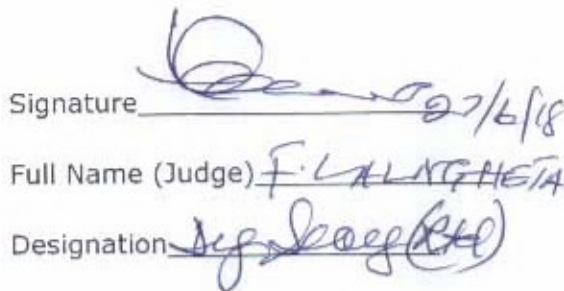 Signature 27/6/18
Full Name (Judge) F. LALNGHETA
Designation Dy. Secy (Rtd)